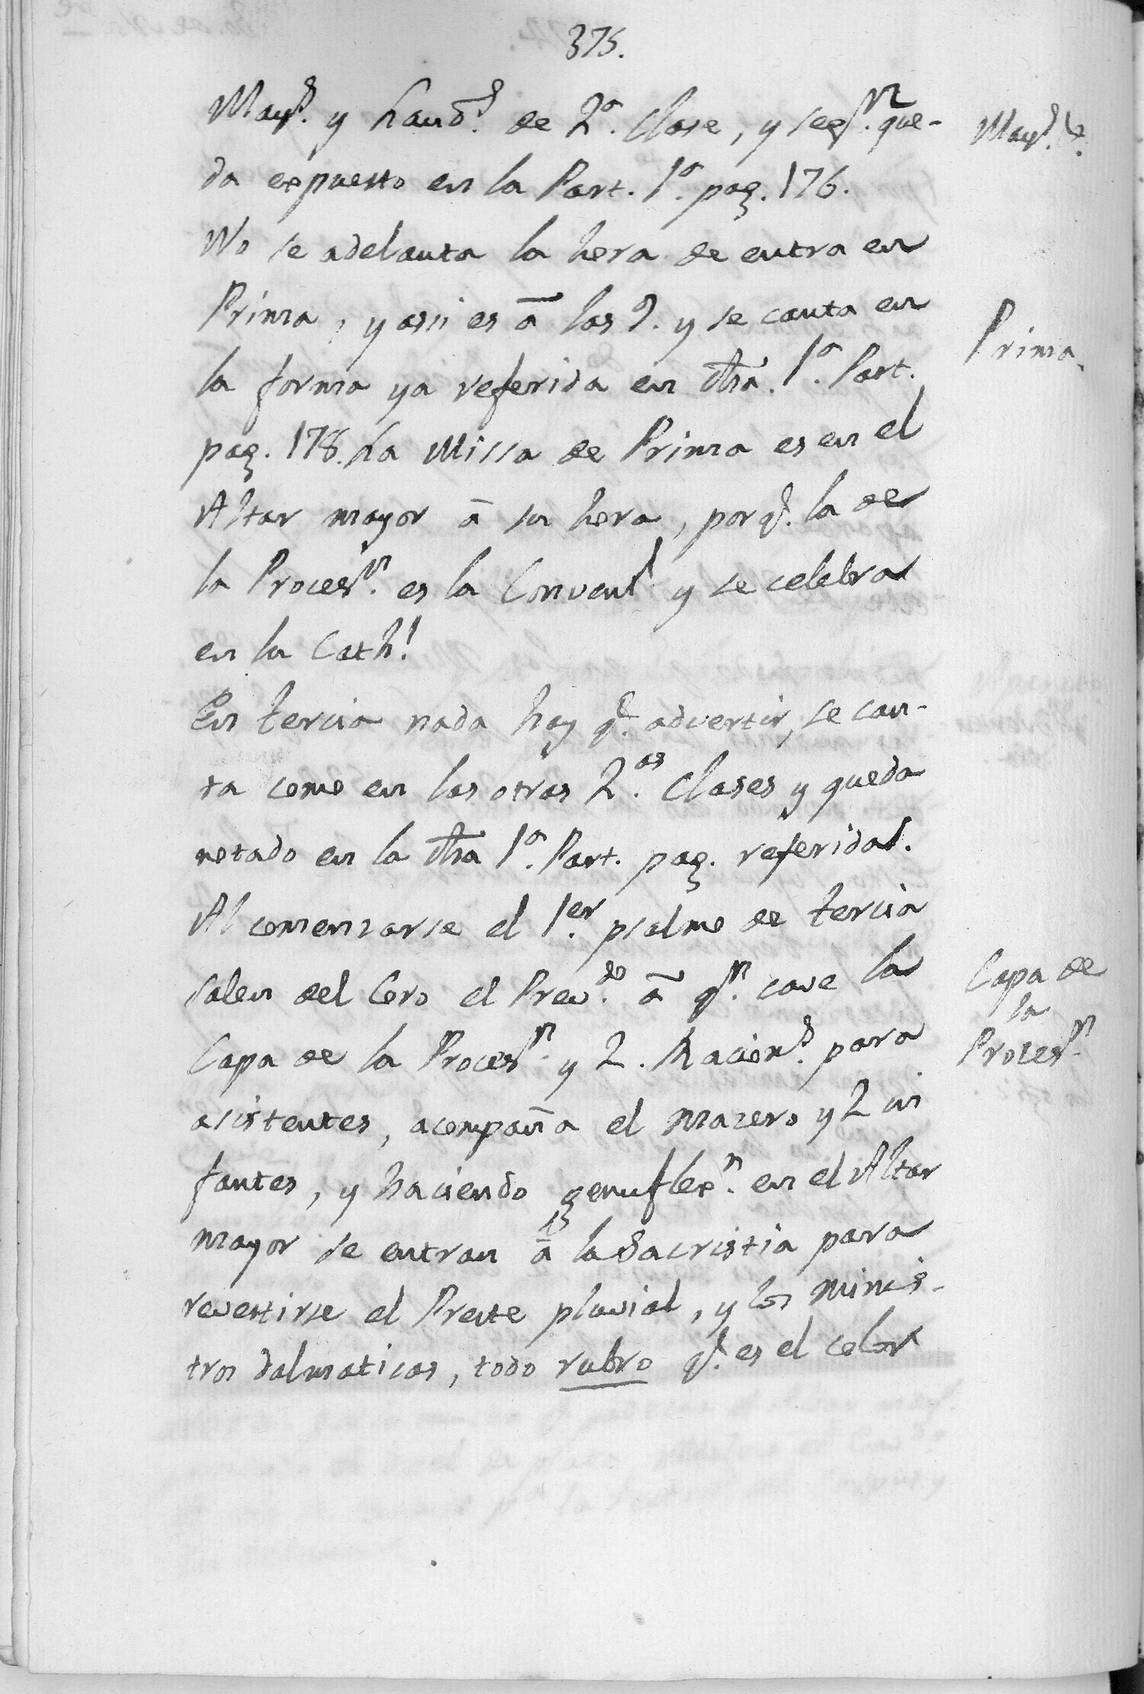 375.
Mayt.s y Laud.s de 2.ª Clase, y seg.n que-
da expuesto en la Part. 1.ª pag. 176.
Mayt.s &.
No se adelanta la hora de entra en
Prima, y assi es â las 9. y se canta en
Prima.
la forma ya referida en dha. 1.ª Part.
pag. 178. La Missa de Prima es en el
Altar mayor â su hora, porq.e la de
la Proces.n es la Convent.l y se celebra
en la Cath.l
En tercia nada hay q.e advertir, se can-
ta como en las otras 2.as Clases y queda
notado en la dha 1.ª Part. pag. referida.
Al comenzarse el 1.er psalmo de tercia
salen del Coro el Prev.do â q.n cave la
Capa de
la
Proces.n
Capa de la Proces.n y 2. Racion.s para
asistentes, acompaña el mazero y 2 in
fantes, y haciendo genuflex.n en el Altar
mayor se entran â la Sacristia para
revestirse el Preste pluvial, y los minis-
tros dalmaticas, todo rubro q.e es el color